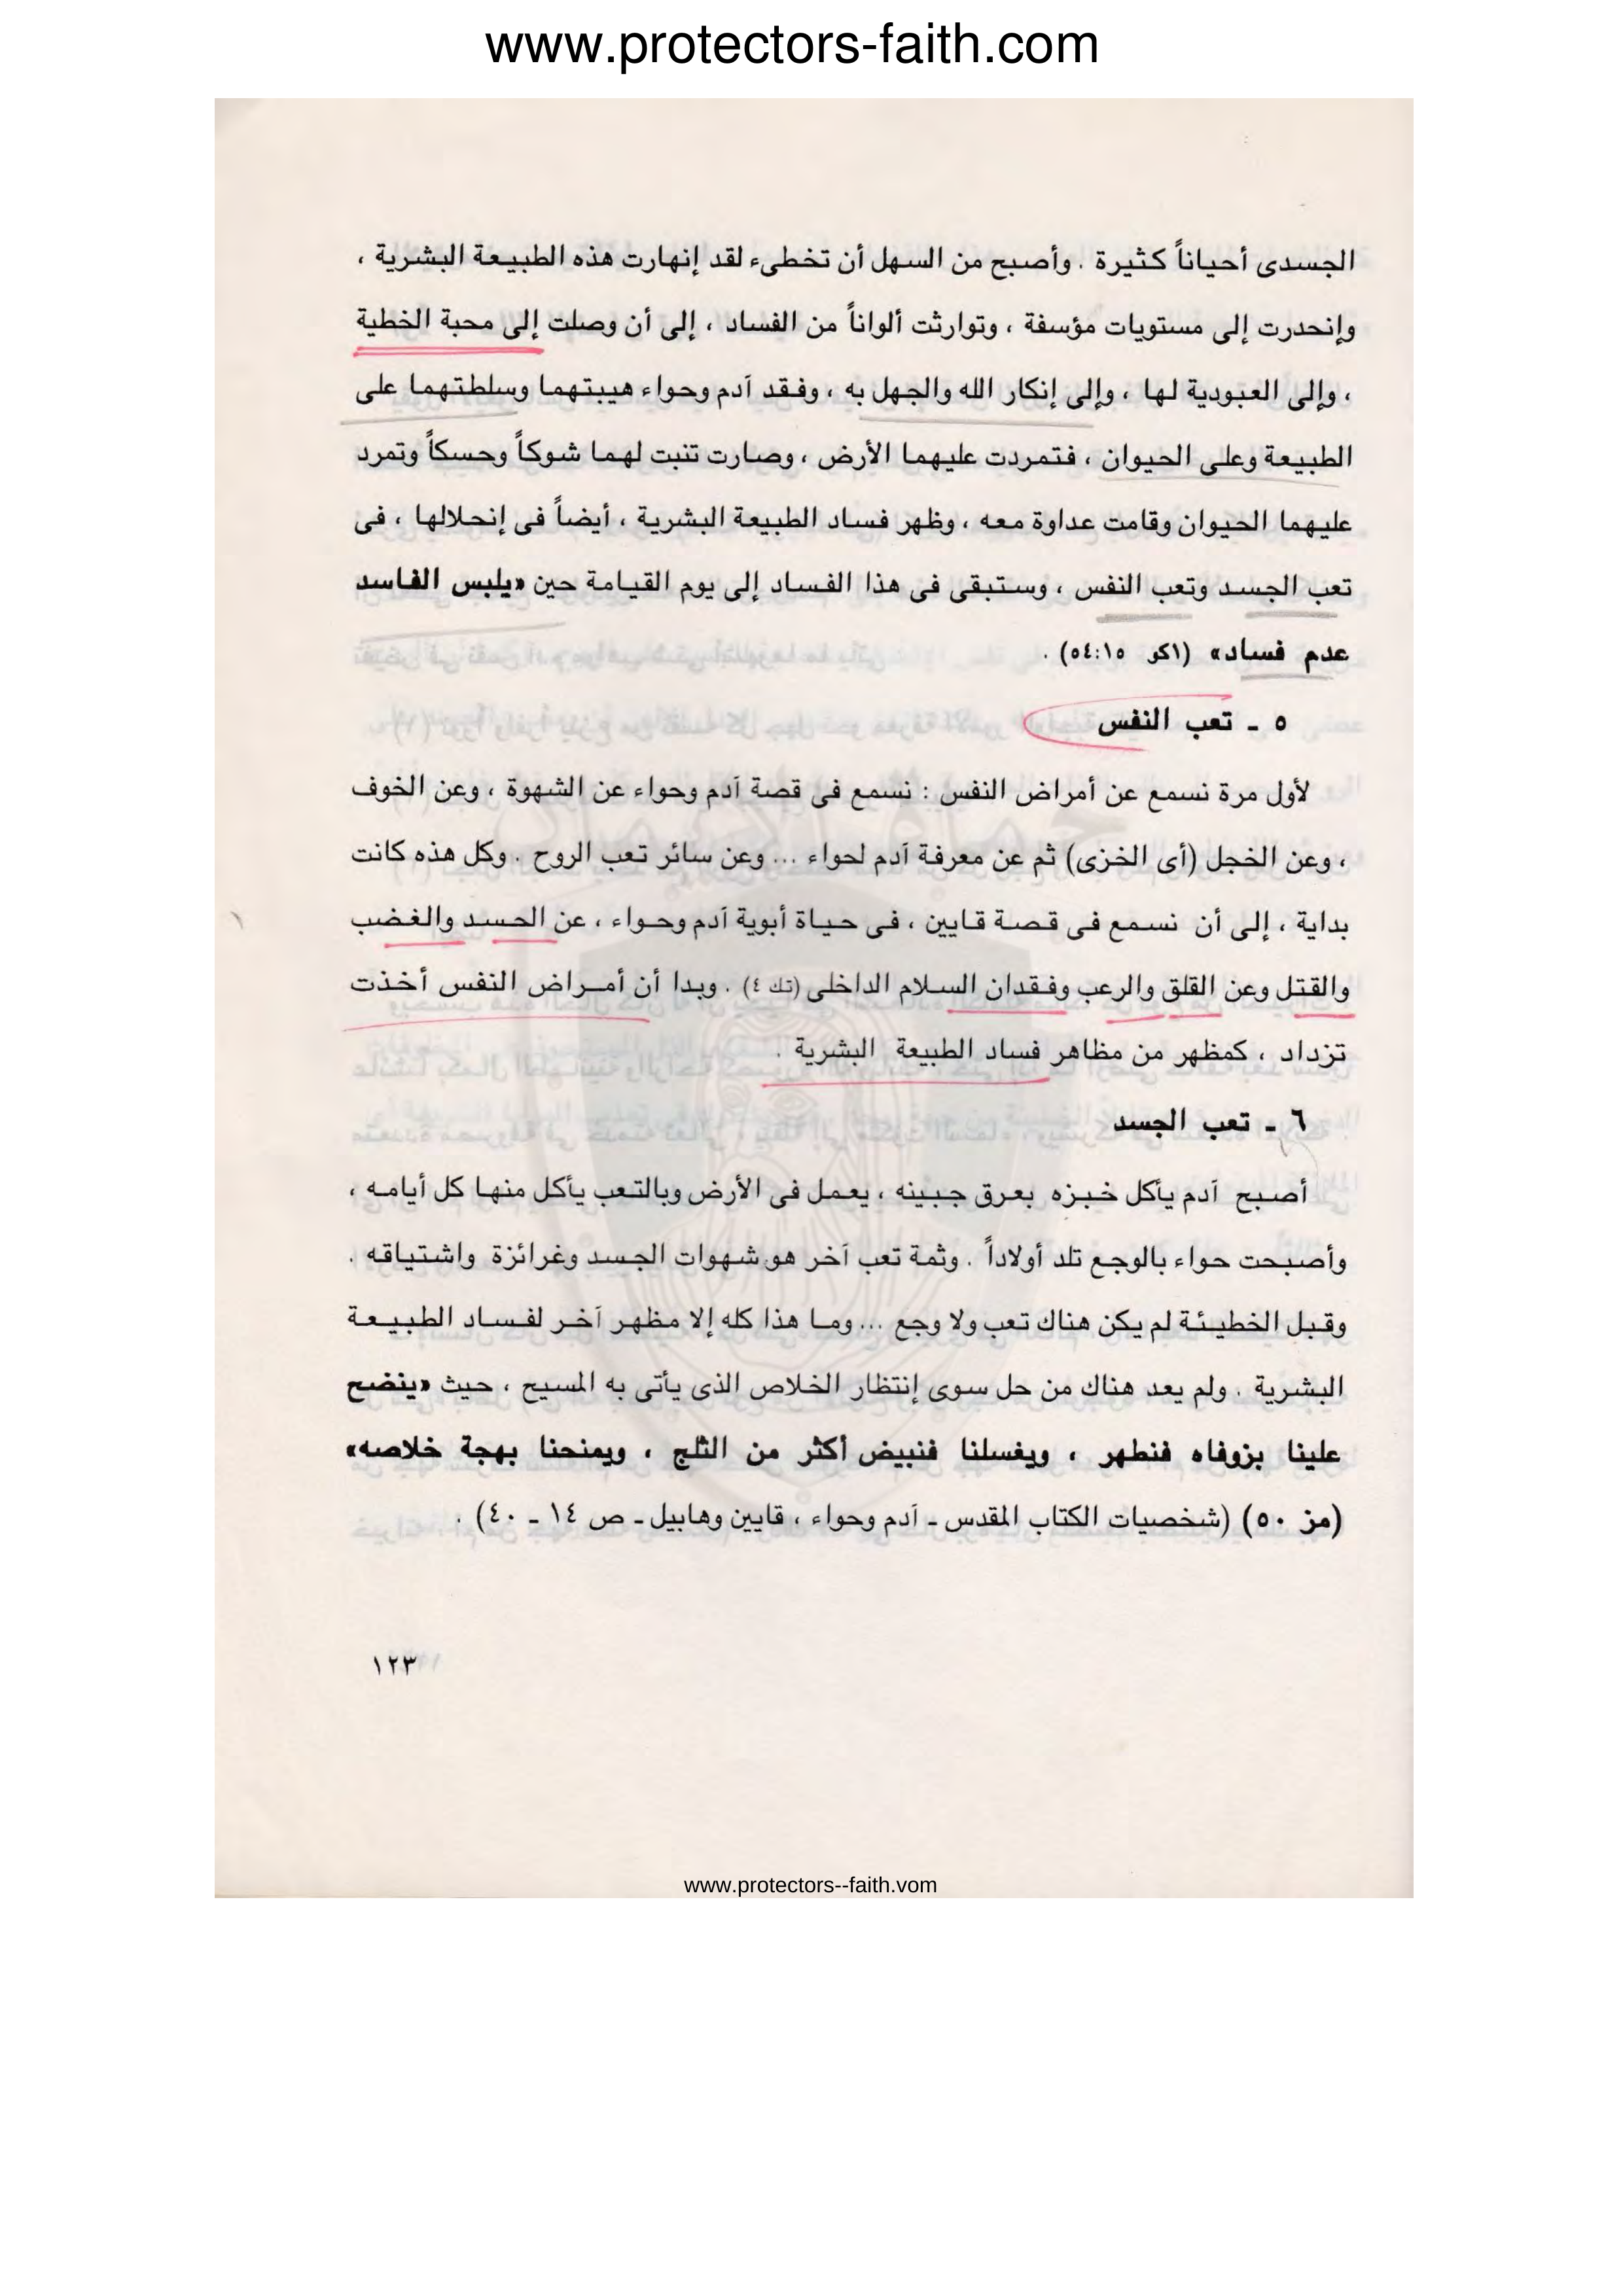 www.protectors-faith.com
الجسدى أحياناً كثيرة . وأصبح من السهل أن تخطىء لقد إنهارت هذه الطبيعة البشرية ،
وإنحدرت إلى مستويات مؤسفة ، وتوارثت ألواناً من الفساد ، إلى أن وصلت إلى محبة الخطية
، وإلى العبودية لها ، وإلى إنكار الله والجهل به ، وفقد آدم وحواء هيبتهما وسلطتهما على
الطبيعة وعلى الحيوان ، فتمردت عليهما الأرض ، وصارت تنبت لهما شوكاً وحسكاً وتمرد
عليهما الحيوان وقامت عداوة معه ، وظهر فساد الطبيعة البشرية ، أيضاً فى إنحلالها ، فى
تعب الجسد وتعب النفس ، وستبقى فى هذا الفساد إلى يوم القيامة حين «يلبس الفاسد
عدم فساد» (١كو ١٥:٥٤) .
٥ ـ تعب النفس
لأول مرة نسمع عن أمراض النفس : نسمع فى قصة آدم وحواء عن الشهوة ، وعن الخوف
، وعن الخجل (أى الخزى) ثم عن معرفة آدم لحواء ... وعن سائر تعب الروح . وكل هذه كانت
بداية ، إلى أن نسمع فى قصة قايين ، فى حياة أبوية آدم وحواء ، عن الحسد والغضب
والقتل وعن القلق والرعب وفقدان السلام الداخلى (تك ٤) . وبدا أن أمراض النفس أخذت
تزداد ، كمظهر من مظاهر فساد الطبيعة البشرية .
٦ ـ تعب الجسد
أصبح آدم يأكل خبزه بعرق جبينه ، يعمل فى الأرض وبالتعب يأكل منها كل أيامه ،
وأصبحت حواء بالوجع تلد أولاداً . وثمة تعب آخر هو شهوات الجسد وغرائزة واشتياقه .
وقبل الخطيئة لم يكن هناك تعب ولا وجع ... وما هذا كله إلا مظهر آخر لفساد الطبيعة
البشرية . ولم يعد هناك من حل سوى إنتظار الخلاص الذى يأتى به المسيح ، حيث «ينضح
علينا بزوفاه فنطهر ، ويغسلنا فنبيض أكثر من الثلج ، ويمنحنا بهجة خلاصه»
(مز ٥٠) (شخصيات الكتاب المقدس ـ آدم وحواء ، قايين وهابيل ـ ص ١٤ ـ ٤٠) .
١٢٣
www.protectors--faith.vom